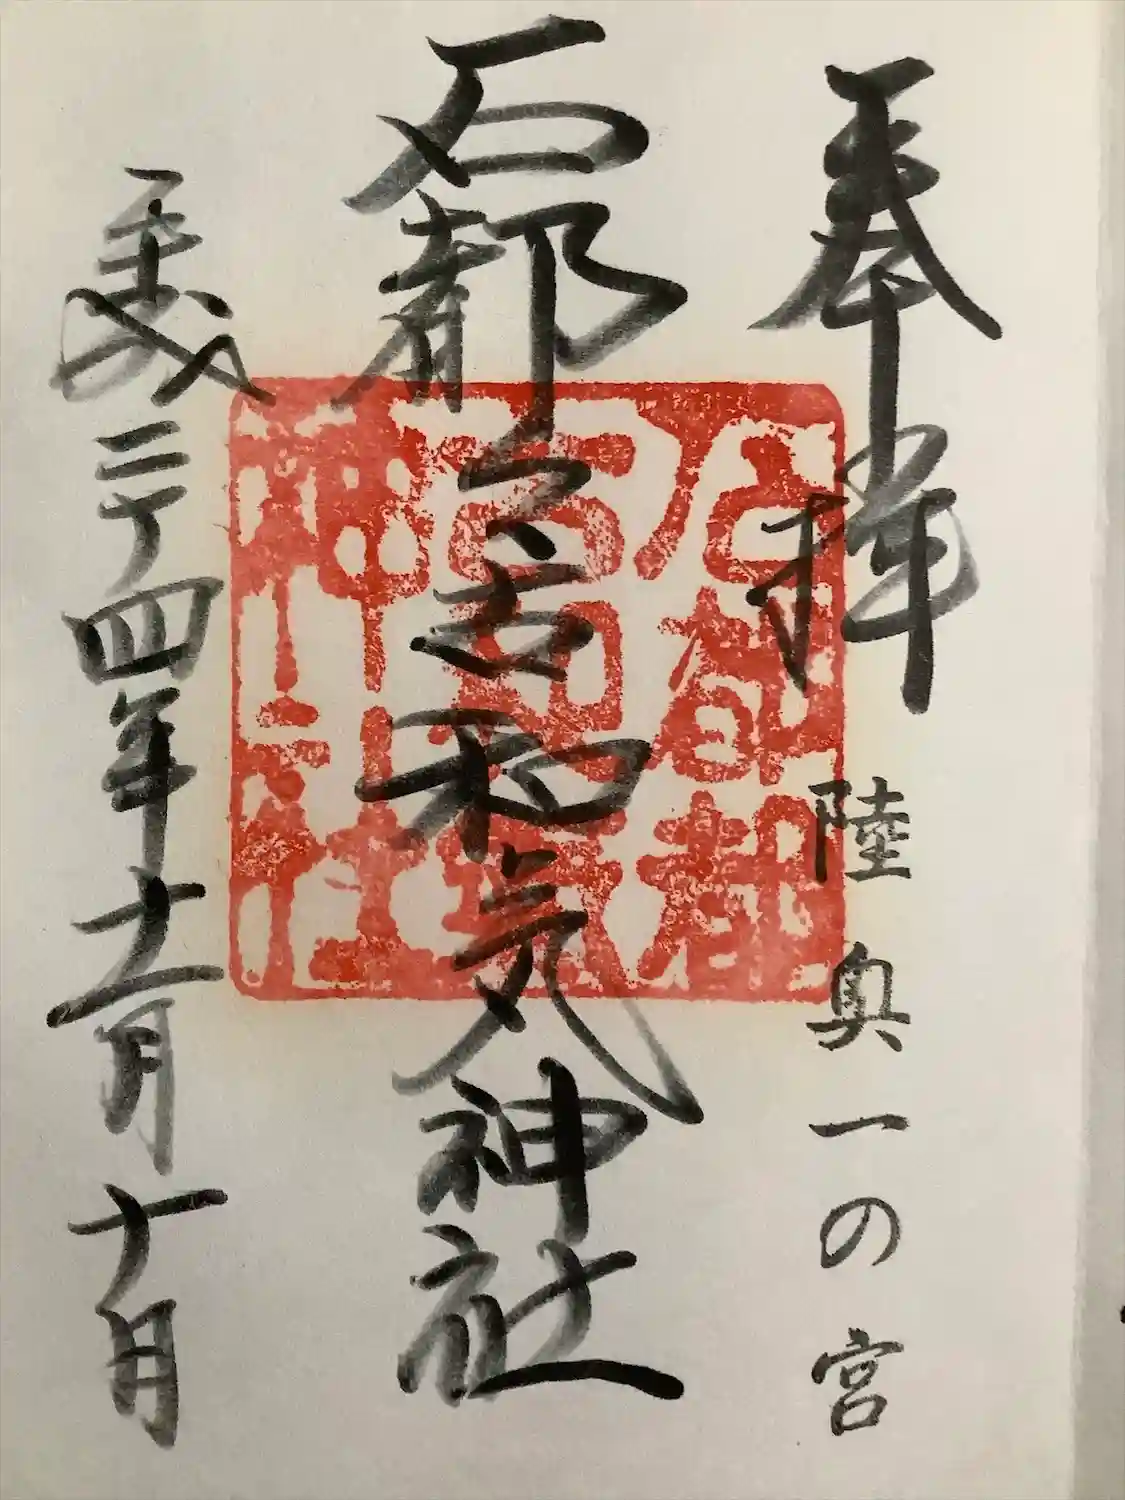 奉拝 陸奥一の宮
石都々古和気神社
平成二十四年十一月十日
石都都
古和氣
神社